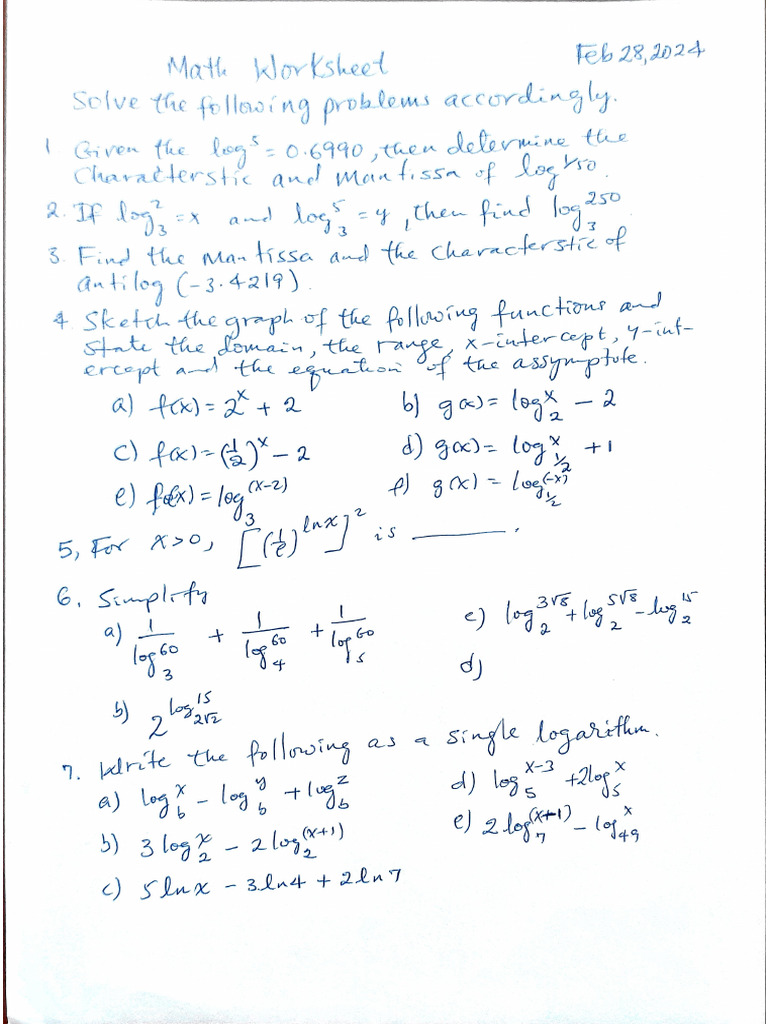 Math Worksheet
Feb 28, 2024
Solve the following problems accordingly.
1 Given the log⁵ = 0.6990, then determine the
Characterstic and Mantissa of log^(1/50).
2. If log₃² = x and log₃⁵ = y, then find log₃²⁵⁰
3. Find the Mantissa and the characterstic of
antilog (-3.4219).
4. Sketch the graph of the following functions and
state the domain, the range, x-intercept, y-int-
ercept and the equation of the assymptote.
a) f(x) = 2^x + 2
b) g(x) = log₂^x - 2
c) f(x) = (1/2)^x - 2
d) g(x) = log_(1/2)^x + 1
e) f(x) = log₃^(x-2)
f) g(x) = log_(1/2)^(-x)
5, For x>0, [(1/e)^(ln x)]² is ______.
6. Simplify
a) 1/log₃⁶⁰ + 1/log₄⁶⁰ + 1/log₅⁶⁰
c) log₂^(3√8) + log₂^(5√8) - log₂¹⁵
d)
b) 2^(log_(2√2)^15)
7. Write the following as a single logarithm.
a) log_b^x - log_b^y + log_b^z
d) log₅^(x-3) + 2log₅^x
b) 3 log₂^x - 2 log₂^(x+1)
e) 2 log₇^(x+1) - log₄₉^x
c) 5 ln x - 3 ln 4 + 2 ln 7